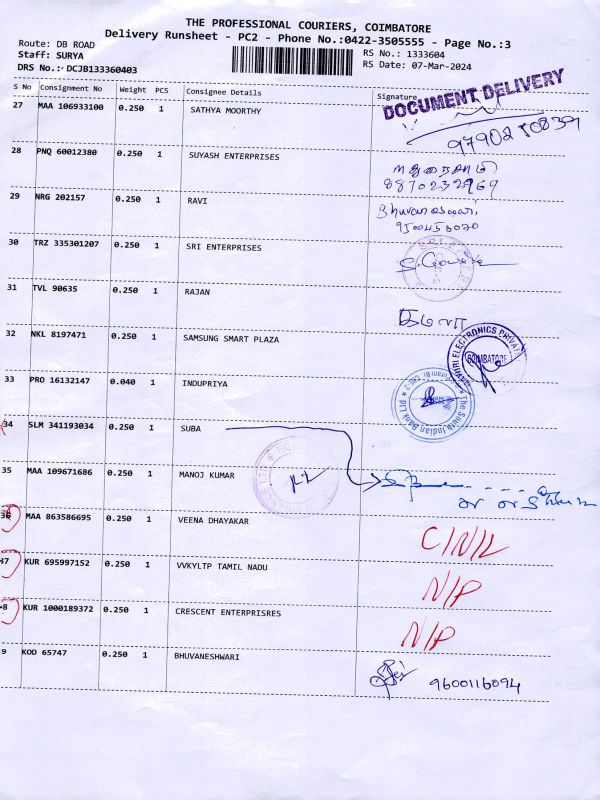 THE PROFESSIONAL COURIERS, COIMBATORE
Delivery Runsheet - PC2 - Phone No.:0422-3505555 - Page No.:3
Route: DB ROAD
RS No.: 1333604
Staff: SURYA
RS Date: 07-Mar-2024
DRS No.: DCJB133360403
S No Consignment No Weight PCS Consignee Details Signature
DOCUMENT DELIVERY
27 MAA 106933100 0.250 1 SATHYA MOORTHY
28 PNQ 60012380 0.250 1 SUYASH ENTERPRISES
8870232969
29 NRG 202157 0.250 1 RAVI Bhuvaneswari,
30 TRZ 335301207 0.250 1 SRI ENTERPRISES
31 TVL 90635 0.250 1 RAJAN
32 NKL 8197471 0.250 1 SAMSUNG SMART PLAZA
COIMBATORE
33 PRO 16132147 0.040 1 INDUPRIYA
The South Indian Bank
34 SLM 341193034 0.250 1 SUBA
35 MAA 109671686 0.250 1 MANOJ KUMAR
36 MAA 863586695 0.250 1 VEENA DHAYAKAR C/N/L
37 KUR 695997152 0.250 1 VVKYLTP TAMIL NADU N/P
8 KUR 1000189372 0.250 1 CRESCENT ENTERPRISRES N/P
9 KOD 65747 0.250 1 BHUVANESHWARI 9600116094